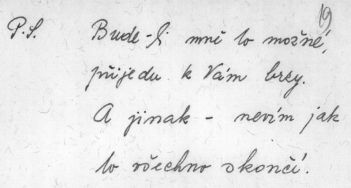 19
P.S. Bude-li mně to možné,
přijedu k Vám brzy.
A jinak - nevím jak
to všechno skončí.